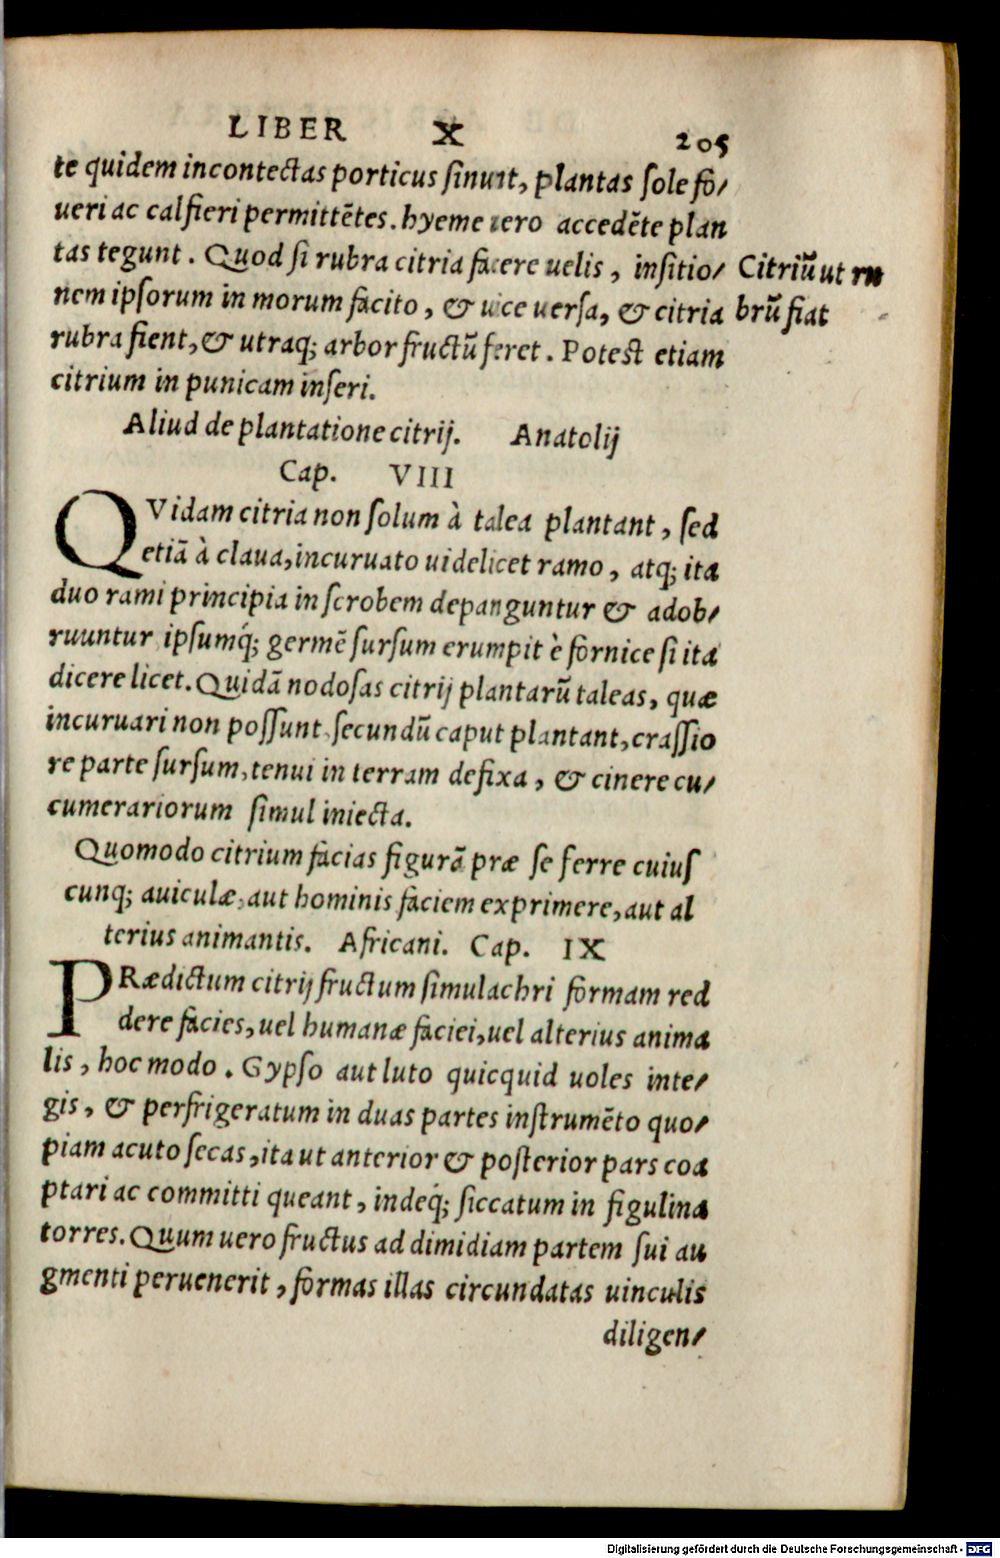 LIBER X 205
te quidem incontectas porticus sinunt, plantas sole fo/
ueri ac calfieri permittẽtes. hyeme uero accedẽte plan
tas tegunt. Quod si rubra citria facere uelis, insitio/
nem ipsorum in morum facito, & uice uersa, & citria
rubra fient, & utraq; arbor fructũ feret. Potest etiam
citrium in punicam inseri.
Citriũ ut ru
brũ fiat
Aliud de plantatione citrij. Anatolij
Cap. VIII
QVidam citria non solum à talea plantant, sed
etiã à claua, incuruato uidelicet ramo, atq; ita
duo rami principia in scrobem depanguntur & adob/
ruuntur ipsumq́; germẽ sursum erumpit è fornice si ita
dicere licet. Quidã nodosas citrij plantarũ taleas, quæ
incuruari non possunt, secundũ caput plantant, crassio
re parte sursum, tenui in terram defixa, & cinere cu/
cumerariorum simul iniecta.
Quomodo citrium facias figurã præ se ferre cuius
cunq; auiculæ, aut hominis faciem exprimere, aut al
terius animantis. Africani. Cap. IX
PRædictum citrij fructum simulachri formam red
dere facies, uel humanæ faciei, uel alterius anima
lis, hoc modo. Gypso aut luto quicquid uoles inte/
gis, & perfrigeratum in duas partes instrumẽto quo/
piam acuto secas, ita ut anterior & posterior pars coa
ptari ac committi queant, indeq́; siccatum in figulina
torres. Quum uero fructus ad dimidiam partem sui au
gmenti peruenerit, formas illas circundatas uinculis
diligen/
Digitalisierung gefördert durch die Deutsche Forschungsgemeinschaft - DFG